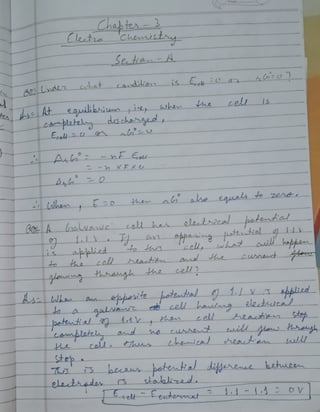 Chapter - 3
Electro Chemistry
Section - A
Under what condition is Ecell = 0 or ΔG = 0?
Ans:- At equilibrium, i.e, when the cell is
completely discharged,
Ecell = 0 or ΔG° = 0
∴ ΔrG° = - nF Ecell
= - n x F x 0
ΔrG° = 0
∴ When, E = 0 then ΔG° also equals to zero.
A Galvanic cell has electrical potential
of 1.1 V. If an opposing potential of 1.1 V
is applied to this cell, what will happen
to the cell reaction and the current
flowing through the cell?
Ans:- When an opposite potential of 1.1 V is applied
to a galvanic cell having electrical
potential of 1.1 V, then cell reaction stop
completely and no current will flow through
the cell. thus chemical reaction will
stop.
This is because potential difference between
electrodes is stabilized.
Ecell - Eexternal = 1.1 - 1.1 = 0 V